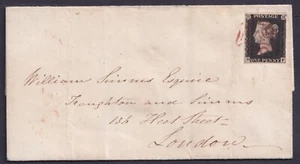 POSTAGE
ONE PENNY
William Simms Esquire
Troughton and Simms
136 Fleet Street
London